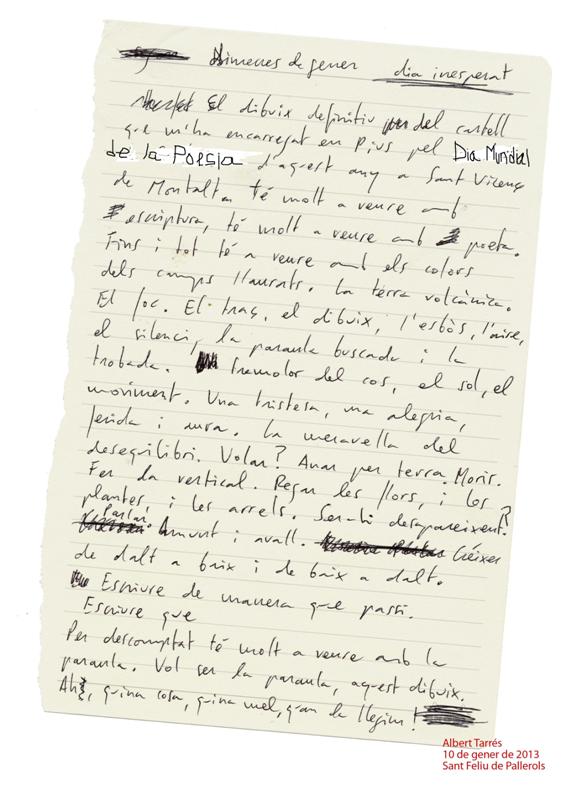 Dimecres de gener dia inesperat
El dibuix definitiu del castell
que m'ha encarregat en Pius pel Dia Mundial
de la Poesia d'aquest any a Sant Vicenç
de Montalt. Té molt a veure amb
escriptura, té molt a veure amb poeta.
Fins i tot té a veure amb els colors
dels camps llaurats. La terra volcànica.
El foc. El traç, el dibuix, l'esbòs, l'aire,
el silenci, la paraula buscada i la
trobada. tremolor del cos, el sol, el
moviment. Una tristesa, una alegria,
ferida i cura. La meravella del
desequilibri. Volar? Anar per terra. Morir.
Fer da vertical. Regar les flors, i les
plantes, i les arrels. Ser-hi desapareixent?
Parlar. Amunt i avall. Créixer
de dalt a baix i de baix a dalt.
Escriure de manera que passi.
Escriure que
Per descomptat té molt a veure amb la
paraula. Vol ser la paraula, aquest dibuix.
Ah, quina cosa, quina mel, llegim!
Albert Tarrés
10 de gener de 2013
Sant Feliu de Pallerols